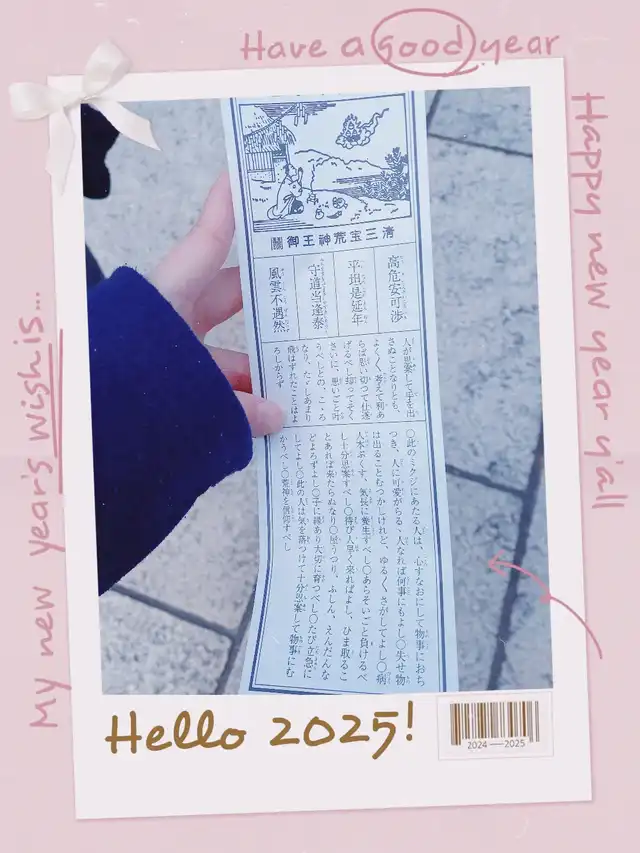 Have a good year
Happy new year y'all
My new year's wish is...
清三宝荒神王御鬮
高危安可渉
平坦是延年
守道当逢泰
風雲不遇然
人が思案して手を出
さぬことなりとも、
よく〱考えて利あ
らば思い切つて仕遂
げるべし却つてそく
さいに、思いごと叶
うべしとの、こゝろ
なり、たゞしあまり
飛はずれたことはよ
ろしからず
〇此のミクジにあたる人は、心すなおにして物事におち
つき、人に可愛がらる、人なれば何事にもよし〇失せ物
は出ることむつかしけれど、ゆる〱さがしてよし〇病
人本ぷくす、気長に養生すべし〇あらそいごと負けるべ
し十分思案すべし〇待び人早く来ればよし、ひま取るこ
とあれば来たらぬなり〇屋うつり、ふしん、えんだんな
どよろずよし〇子に縁あり大切に育つべし〇たび立急に
してよし〇此の人は気を落つけて十分思案して物事にむ
かうべし〇荒神を信仰すべし
Hello 2025!
2024—2025